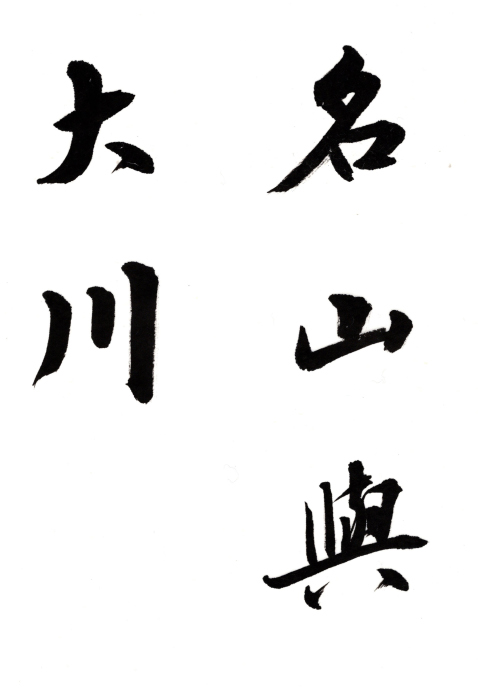 名山與
大川